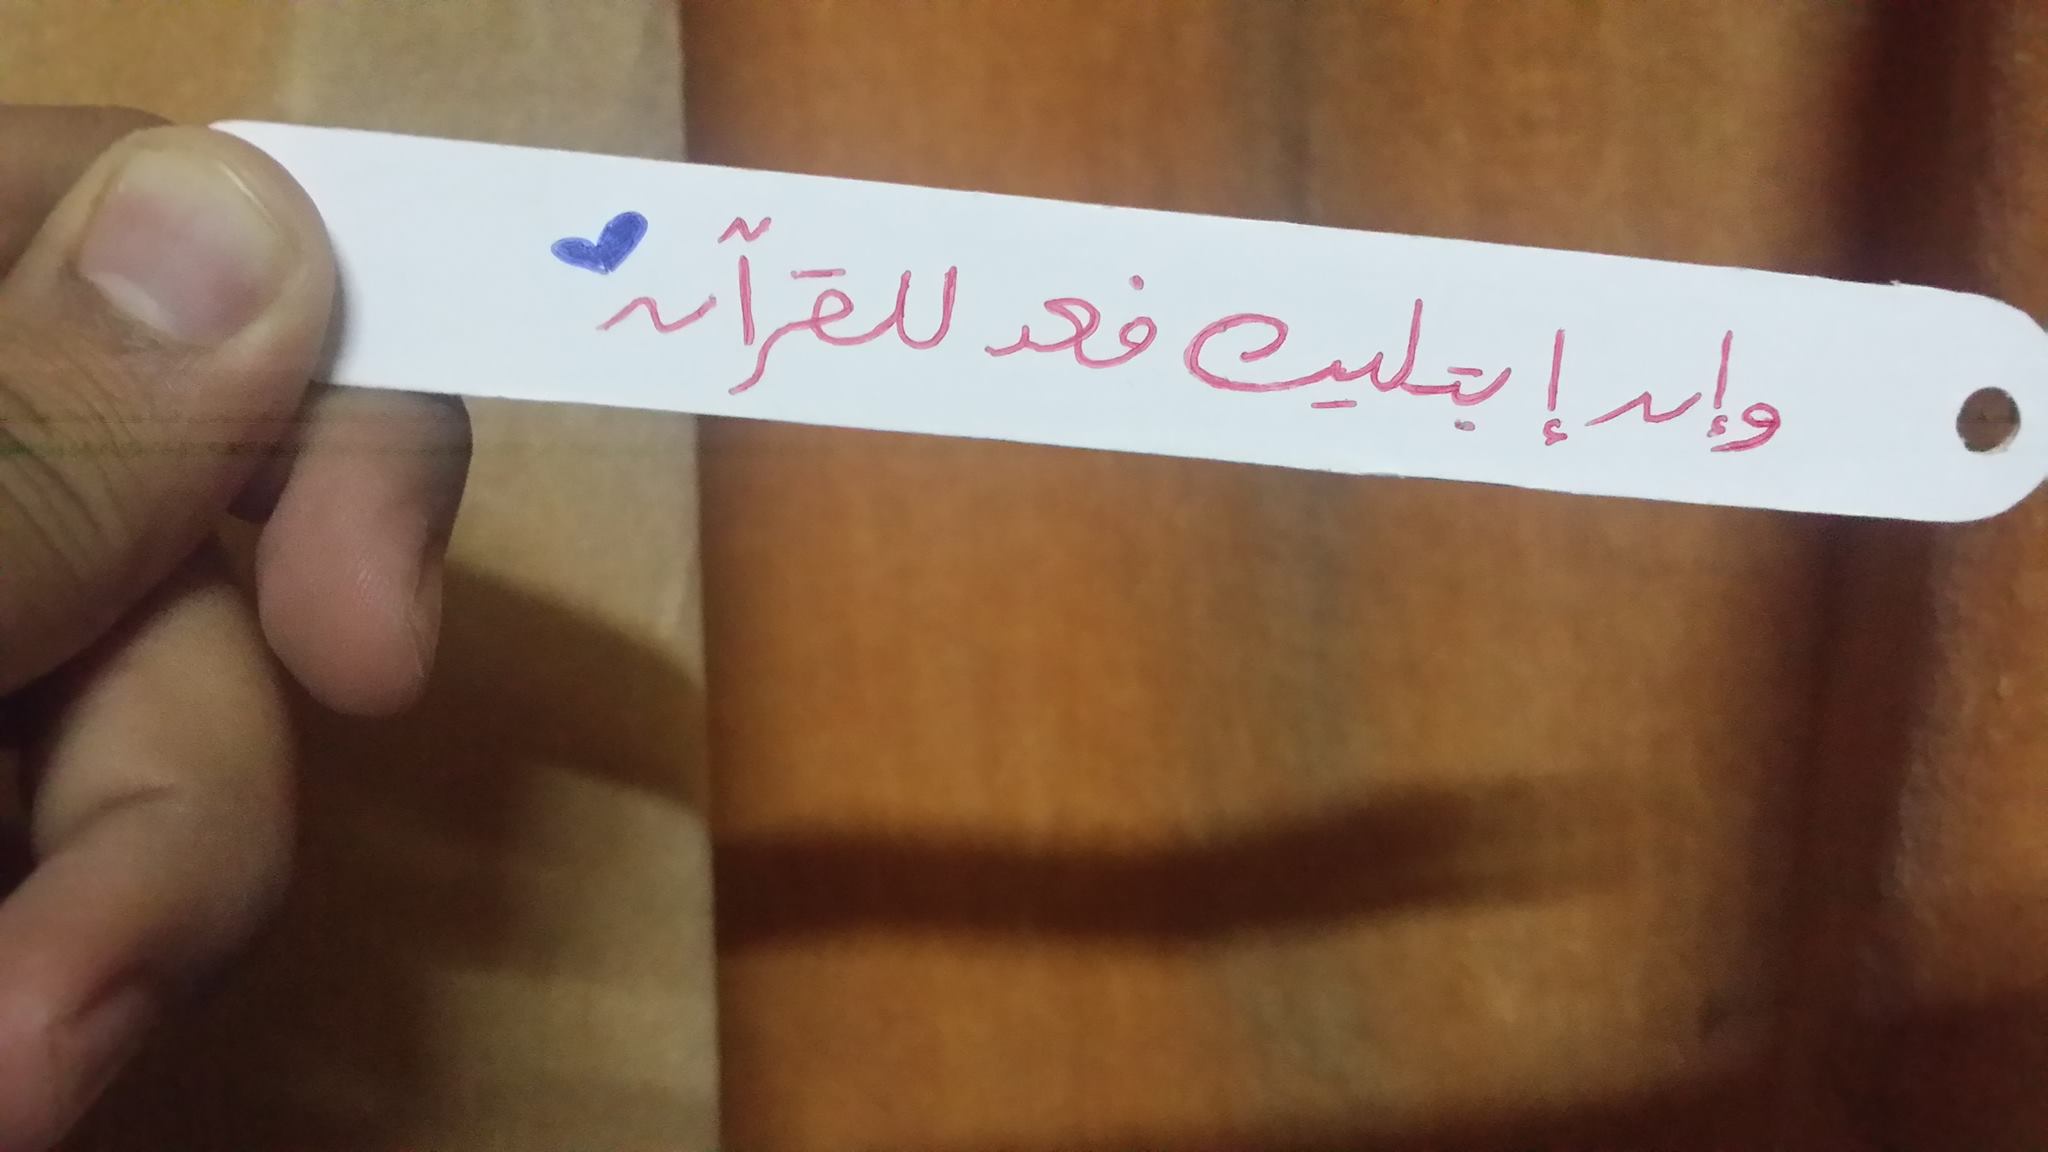 وإن إبتليت فعد للقرآن